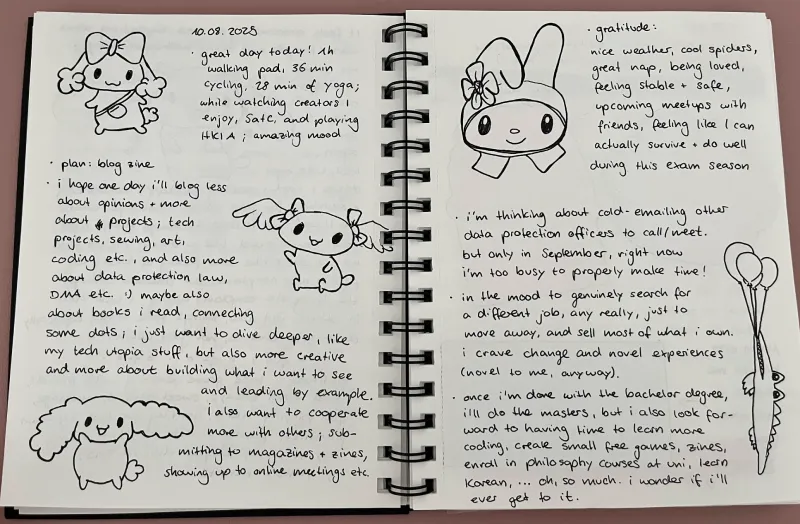 10.08.2025
· great day today! 1h
walking pad, 36 min
cycling, 28 min of yoga;
while watching creators i
enjoy, SatC, and playing
HKIA; amazing mood
· plan: blog zine
· i hope one day i'll blog less
about opinions + more
about projects; tech
projects, sewing, art,
coding etc., and also more
about data protection law,
DMA etc. :) maybe also
about books i read, connecting
some dots; i just want to dive deeper, like
my tech utopia stuff, but also more creative
and more about building what i want to see
and leading by example.
i also want to cooperate
more with others; sub-
mitting to magazines + zines,
showing up to online meetings etc.
· gratitude:
nice weather, cool spiders,
great nap, being loved,
feeling stable + safe,
upcoming meetups with
friends, feeling like I can
actually survive + do well
during this exam season
· i'm thinking about cold-emailing other
data protection officers to call/meet.
but only in September, right now
i'm too busy to properly make time!
· in the mood to genuinely search for
a different job, any really, just to
move away, and sell most of what i own.
i crave change and novel experiences
(novel to me, anyway).
· once i'm done with the bachelor degree,
i'll do the masters, but i also look for-
ward to having time to learn more
coding, create small free games, zines,
enroll in philosophy courses at uni, learn
Korean, ... oh, so much. i wonder if i'll
ever get to it.